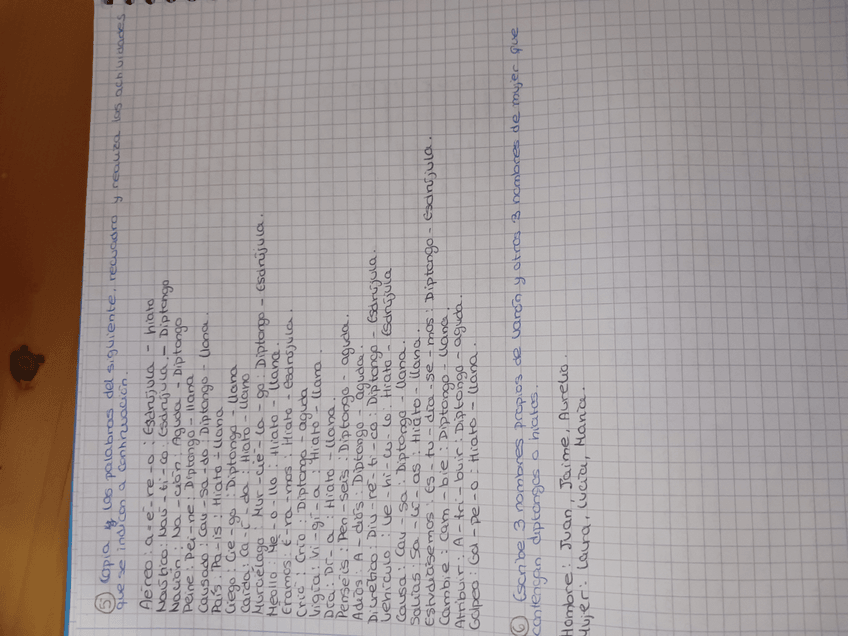 ⑤ Copia y las palabras del siguiente, recuadro y realiza las actividades
que se indican a continuación.
Aéreo: a-é-re-o: Esdrújula - hiato
Naútico: Naú-ti-co: Esdrújula - Diptongo
Nación: Na-ción: Aguda - Diptongo
Peine: Pei-ne: Diptongo - llana
Causado: Cau-sa-do: Diptongo - llana.
País: Pa-ís: Hiato - llana
Ciego: Cie-go: Diptongo - llana
Caída: Ca-í-da: Hiato - llana
Murciélago: Mur-cié-la-go: Diptongo - Esdrújula.
Meollo: Me-o-llo: Hiato - llana.
Éramos: É-ra-mos: Hiato - Esdrújula.
Crió: Crió: Diptongo - aguda
Vigía: Vi-gí-a: Hiato - llana.
Día: Dí-a: Hiato - llana.
Penséis: Pen-séis: Diptongo - aguda.
Adiós: A-diós: Diptongo - aguda.
Diurético: Diu-ré-ti-co: Diptongo - Esdrújula.
Vehículo: Ve-hí-cu-lo: Hiato - Esdrújula
Causa: Cau-sa: Diptongo - llana.
Salías: Sa-lí-as: Hiato - llana.
Estudiásemos: Es-tu-diá-se-mos: Diptongo - Esdrújula.
Cambie: Cam-bie: Diptongo - llana
Atribuir: A-tri-buir: Diptongo - aguda.
Golpeo: Gol-pe-o: Hiato - llana.
⑥ Escribe 3 nombres propios de varón y otros 3 nombres de mujer que
contengan diptongos o hiatos.
Hombre: Juan, Jaime, Aurelio.
Mujer: Laura, Lucía, María.